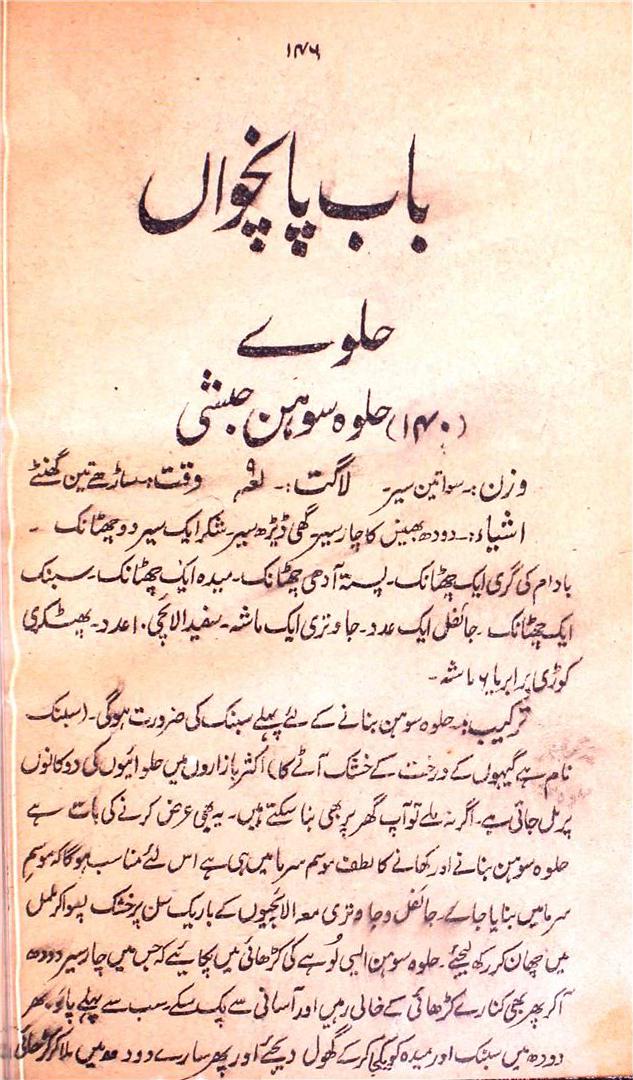 ۱۴۶
باب پانچواں
حلوے
(۱۴۰) حلوہ سوہن حبشی
وزن:۔ سوا تین سیر۔ لاگت:۔ وقت:۔ ساڑھے تین گھنٹے
اشیاء:۔ دودھ بھینس کا چار سیر۔ گھی ڈیڑھ سیر۔ شکر ایک سیر دو چھٹانک ۔
بادام کی گری ایک چھٹانک۔ پستہ آدھی چھٹانک۔ میدہ ایک چھٹانک۔ سبنک
ایک چھٹانک ۔ جائفل ایک عدد۔ جاوتری ایک ماشہ۔ سفید الائچی ۱۰ عدد۔ پھٹکری
کوڑی برابر یا ۶ ماشہ ۔
ترکیب:۔ حلوہ سوہن بنانے کے لئے پہلے سبنک کی ضرورت ہوگی۔ (سبنک
نام ہے گیہوں کے درخت کے خشک آٹے کا) اکثر بازاروں میں حلوائیوں کی دوکانوں
پر مل جاتی ہے۔ اگر نہ ملے تو آپ گھر پر بھی بنا سکتے ہیں۔ یہ بھی عرض کرنے کی بات ہے
حلوہ سوہن بنانے اور کھانے کا لطف موسم سرما میں ہی ہے اس لئے مناسب ہوگا کہ موسم
سرما میں بنایا جائے۔ جائفل و جاوتری معہ الائچیوں کے باریک سل پر خشک پسوا کر ململ
میں چھان کر رکھ لیجئے۔ حلوہ سوہن ایسی لوہے کی کڑھائی میں پکائیے کہ جس میں چار سیر دودھ
آکر پھر بھی کنارے کڑھائی کے خالی رہیں اور آسانی سے پک سکے۔ سب سے پہلے پاؤ بھر
دودھ میں سبنک اور میدہ کو یکجا کرکے گھول دیجئے اور پھر سارے دودھ میں ملا کر کڑھائی